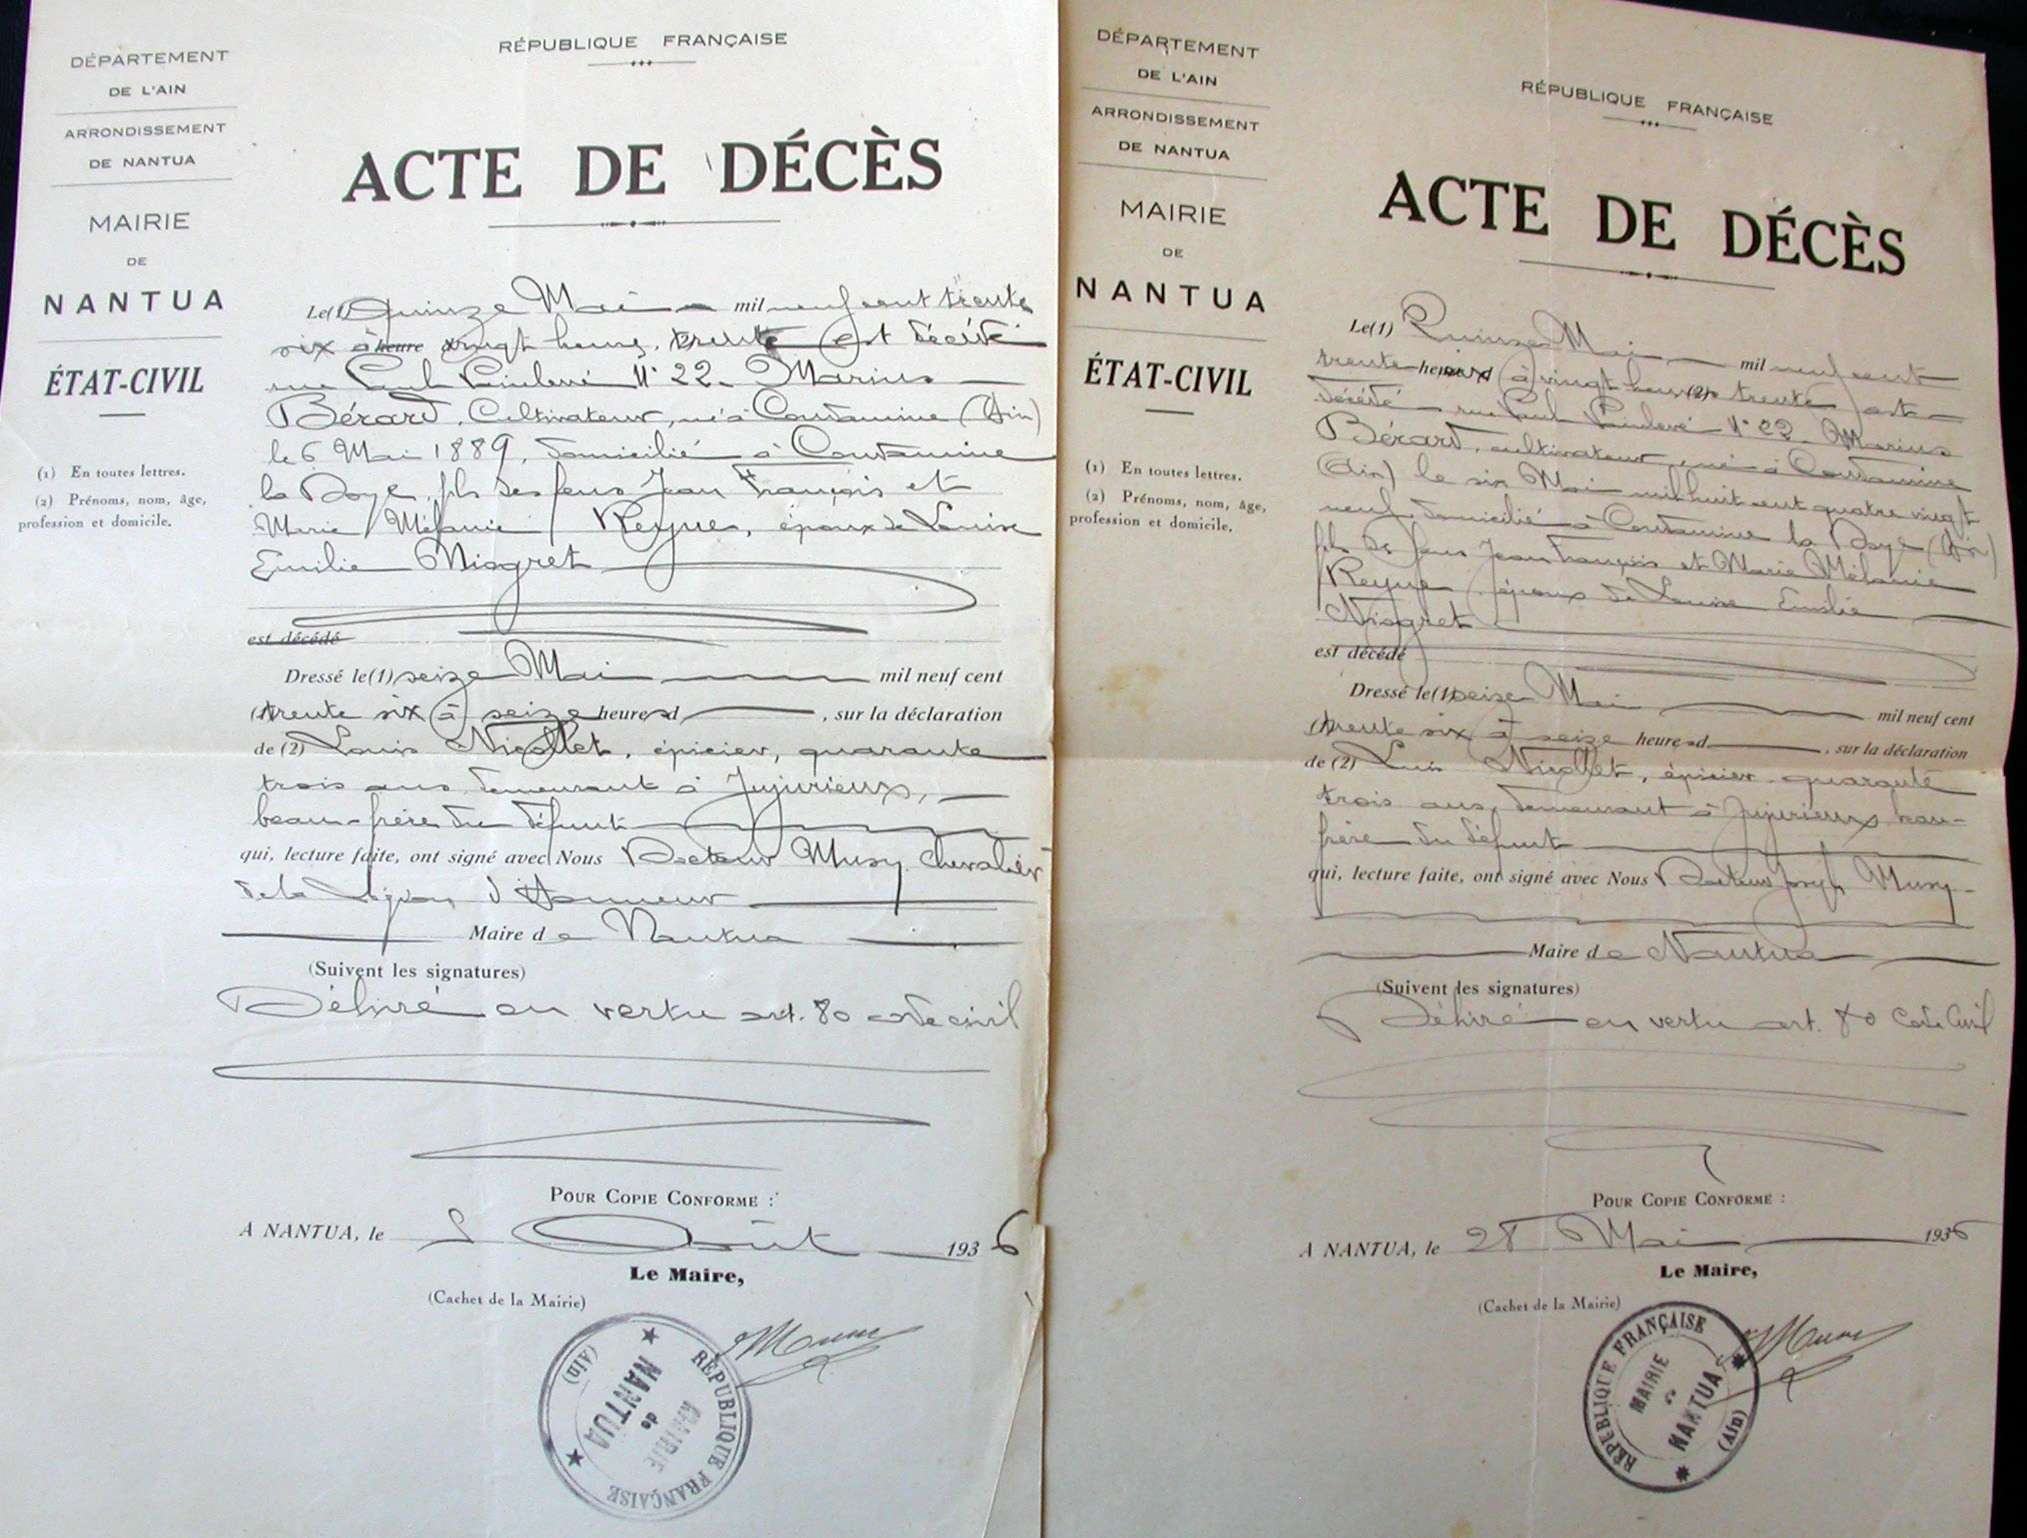 DÉPARTEMENT
DE L'AIN
ARRONDISSEMENT
DE NANTUA
MAIRIE
DE
NANTUA
ÉTAT-CIVIL
(1) En toutes lettres.
(2) Prénoms, nom, âge,
profession et domicile.
RÉPUBLIQUE FRANÇAISE
ACTE DE DÉCÈS
Le(1) Quinze Mai mil neuf cent trente
six à heure vingt heures trente est décédé
rue Paul Painlevé N° 22. Marius
Bérard, Cultivateur, né à Condamine (Ain)
le 6 Mai 1889, domicilié à Condamine
la Doye, fils des feus Jean François et
Marie Mélanie Reyne, époux de Louise
Emilie Niogret
est décédé
Dressé le(1) seize Mai mil neuf cent
trente six à seize heures d , sur la déclaration
de (2) Louis Nicollet, épicier, quarante
trois ans, demeurant à Jujurieux,
beau-frère du défunt
qui, lecture faite, ont signé avec Nous Docteur Musy Chevalier
de la Légion d'Honneur
Maire de Nantua
(Suivent les signatures)
Délivré en vertu art. 80 code civil
POUR COPIE CONFORME :
A NANTUA, le 5 Août 1936
Le Maire,
(Cachet de la Mairie)
RÉPUBLIQUE FRANÇAISE
MAIRIE
de
NANTUA
(Ain)
DÉPARTEMENT
DE L'AIN
ARRONDISSEMENT
DE NANTUA
MAIRIE
DE
NANTUA
ÉTAT-CIVIL
(1) En toutes lettres.
(2) Prénoms, nom, âge,
profession et domicile.
RÉPUBLIQUE FRANÇAISE
ACTE DE DÉCÈS
Le(1) Quinze Mai mil neuf cent
trente heure d à vingt heures (2) trente est
décédé rue Paul Painlevé N° 22. Marius
Bérard, cultivateur, né à Condamine
(Ain) le six Mai mil huit cent quatre vingt
neuf, domicilié à Condamine la Doye (Ain)
fils de feus Jean François et Marie Mélanie
Reyne, époux de Louise Emilie
Niogret
est décédé
Dressé le(1) seize Mai mil neuf cent
trente six à seize heures d , sur la déclaration
de (2) Louis Nicollet, épicier quarante
trois ans, demeurant à Jujurieux beau-
frère du défunt
qui, lecture faite, ont signé avec Nous Docteur Joseph Musy
Maire de Nantua
(Suivent les signatures)
Délivré en vertu art. 80 Code Civil
POUR COPIE CONFORME :
A NANTUA, le 28 Mai 1936
Le Maire,
(Cachet de la Mairie)
RÉPUBLIQUE FRANÇAISE
MAIRIE
NANTUA
(Ain)